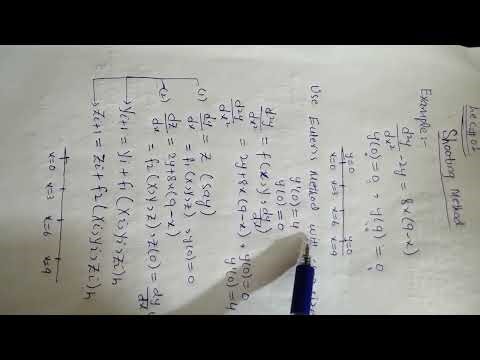 Lec#08
Shooting Method
Example:-
d²y/dx² - 2y = 8x(9-x)
y(0)=0, y(9)=0
y=0 y=0
x=0 x=3 x=6 x=9
Use Euler's Method with
y(0)=0
y'(0)=4
d²y/dx² = f(x,y,dy/dx)
d²y/dx² = 2y+8x(9-x), y(0)=0
y'(0)=4
(1) dy/dx = z (say)
dy/dx = f₁(x,y,z), y(0)=0
dz/dx = 2y+8x(9-x)
(2) dz/dx = f₂(x,y,z), z(0)= dy/dx
yᵢ₊₁ = yᵢ + f₁(xᵢ,yᵢ,zᵢ)h
zᵢ₊₁ = zᵢ + f₂(xᵢ,yᵢ,zᵢ)h
x=0 x=3 x=6 x=9